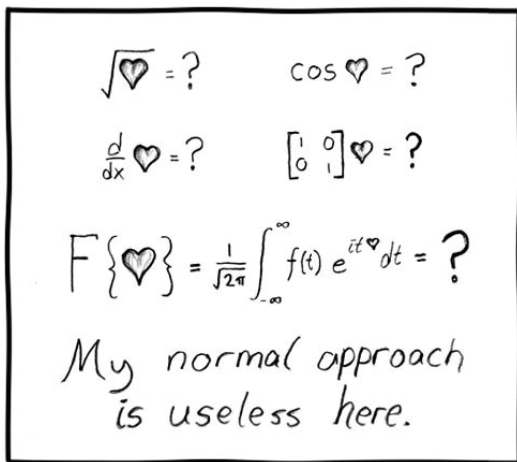 √♥ = ?    cos ♥ = ?
d/dx ♥ = ?    [1 0; 0 1] ♥ = ?
F{♥} = 1/√2π ∫_{-∞}^{∞} f(t) e^{it♥} dt = ?
My normal approach
is useless here.